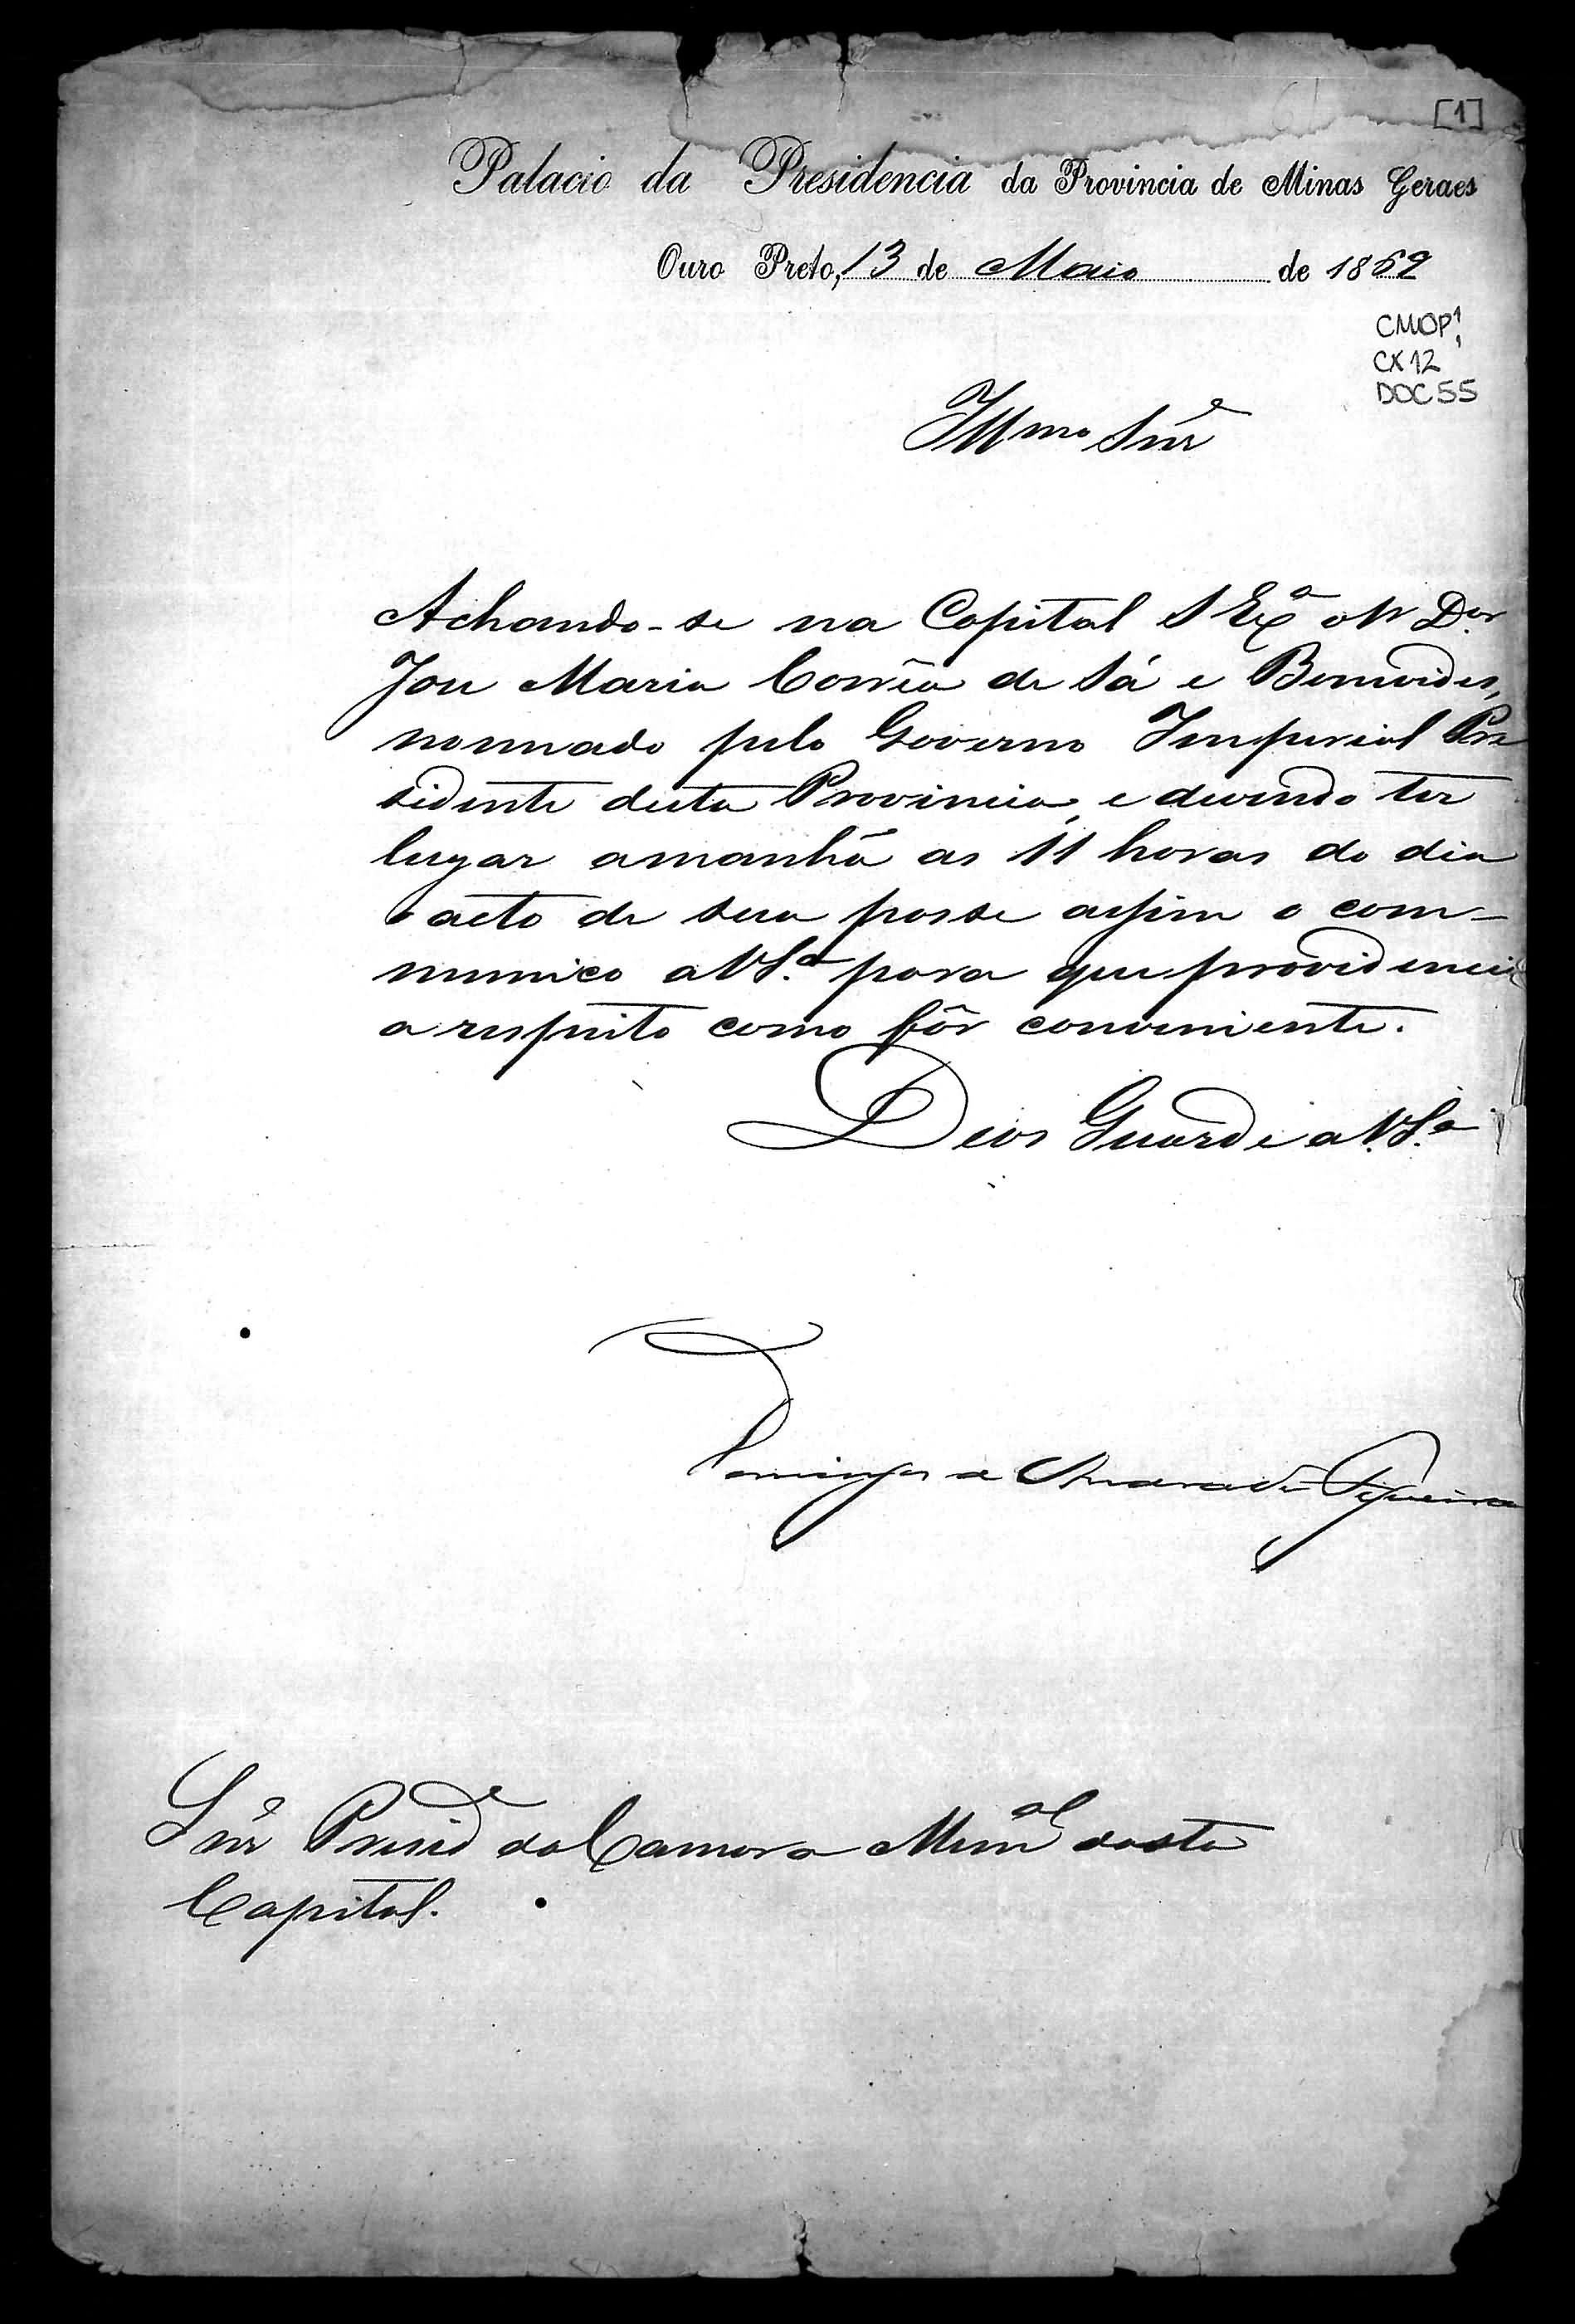 [1]
Palacio da Presidencia da Provincia de Minas Geraes
Ouro Preto, 13 de Maio de 1869
CMOP 1
CX 12
DOC 55
Illmo Snr
Achando-se na Capital S Exª o Dor
José Maria Corrêa de Sá e Benevides,
nomeado pelo Governo Imperial Pre
sidente desta Provincia, e devendo ter
lugar amanhã as 11 horas do dia
o acto de sua posse assim o com-
munico a VSª para que providencie
a respeito como fôr conveniente.
Deos Guarde a V.Sª
Domingos de Andrade Figueira
Snr Preside da Camara Munal desta
Capital.